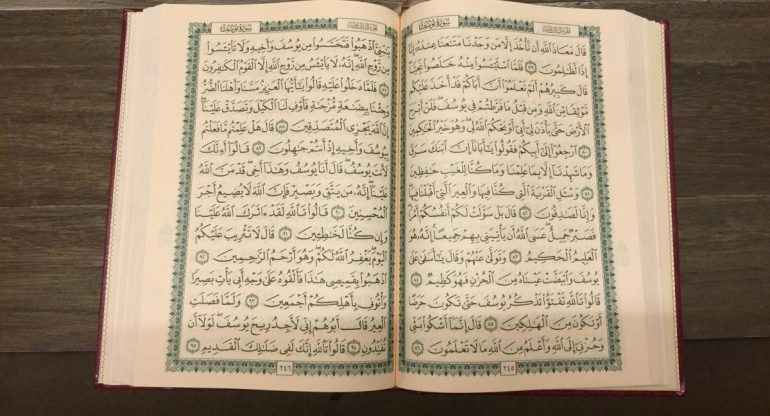 الجزء الثالث عشر
سورة يوسف
قَالَ مَعَاذَ ٱللَّهِ أَن نَّأْخُذَ إِلَّا مَن وَجَدْنَا مَتَٰعَنَا عِندَهُۥٓ إِنَّآ
إِذًا لَّظَٰلِمُونَ ٧٩ فَلَمَّا ٱسْتَيْـَٔسُوا۟ مِنْهُ خَلَصُوا۟ نَجِيًّا
قَالَ كَبِيرُهُمْ أَلَمْ تَعْلَمُوٓا۟ أَنَّ أَبَاكُمْ قَدْ أَخَذَ عَلَيْكُم
مَّوْثِقًا مِّنَ ٱللَّهِ وَمِن قَبْلُ مَا فَرَّطتُمْ فِى يُوسُفَ فَلَنْ أَبْرَحَ
ٱلْأَرْضَ حَتَّىٰ يَأْذَنَ لِىٓ أَبِىٓ أَوْ يَحْكُمَ ٱللَّهُ لِى وَهُوَ خَيْرُ ٱلْحَٰكِمِينَ
٨٠ ٱرْجِعُوٓا۟ إِلَىٰٓ أَبِيكُمْ فَقُولُوا۟ يَٰٓأَبَانَآ إِنَّ ٱبْنَكَ سَرَقَ
وَمَا شَهِدْنَآ إِلَّا بِمَا عَلِمْنَا وَمَا كُنَّا لِلْغَيْبِ حَٰفِظِينَ
٨١ وَسْـَٔلِ ٱلْقَرْيَةَ ٱلَّتِى كُنَّا فِيهَا وَٱلْعِيرَ ٱلَّتِىٓ أَقْبَلْنَا فِيهَا
وَإِنَّا لَصَٰدِقُونَ ٨٢ قَالَ بَلْ سَوَّلَتْ لَكُمْ أَنفُسُكُمْ أَمْرًا
فَصَبْرٌ جَمِيلٌ عَسَى ٱللَّهُ أَن يَأْتِيَنِى بِهِمْ جَمِيعًا إِنَّهُۥ هُوَ
ٱلْعَلِيمُ ٱلْحَكِيمُ ٨٣ وَتَوَلَّىٰ عَنْهُمْ وَقَالَ يَٰٓأَسَفَىٰ عَلَىٰ
يُوسُفَ وَٱبْيَضَّتْ عَيْنَاهُ مِنَ ٱلْحُزْنِ فَهُوَ كَظِيمٌ ٨٤
قَالُوا۟ تَٱللَّهِ تَفْتَؤُا۟ تَذْكُرُ يُوسُفَ حَتَّىٰ تَكُونَ حَرَضًا
أَوْ تَكُونَ مِنَ ٱلْهَٰلِكِينَ ٨٥ قَالَ إِنَّمَآ أَشْكُوا۟ بَثِّى
وَحُزْنِىٓ إِلَى ٱللَّهِ وَأَعْلَمُ مِنَ ٱللَّهِ مَا لَا تَعْلَمُونَ ٨٦
٢٤٥
الجزء الثالث عشر
سورة يوسف
يَٰبَنِىَّ ٱذْهَبُوا۟ فَتَحَسَّسُوا۟ مِن يُوسُفَ وَأَخِيهِ وَلَا تَا۟يْـَٔسُوا۟
مِن رَّوْحِ ٱللَّهِ إِنَّهُۥ لَا يَا۟يْـَٔسُ مِن رَّوْحِ ٱللَّهِ إِلَّا ٱلْقَوْمُ ٱلْكَٰفِرُونَ
٨٧ فَلَمَّا دَخَلُوا۟ عَلَيْهِ قَالُوا۟ يَٰٓأَيُّهَا ٱلْعَزِيزُ مَسَّنَا وَأَهْلَنَا ٱلضُّرُّ
وَجِئْنَا بِبِضَٰعَةٍ مُّزْجَىٰةٍ فَأَوْفِ لَنَا ٱلْكَيْلَ وَتَصَدَّقْ عَلَيْنَآ
إِنَّ ٱللَّهَ يَجْزِى ٱلْمُتَصَدِّقِينَ ٨٨ قَالَ هَلْ عَلِمْتُم مَّا فَعَلْتُم
بِيُوسُفَ وَأَخِيهِ إِذْ أَنتُمْ جَٰهِلُونَ ٨٩ قَالُوٓا۟ أَءِنَّكَ
لَأَنتَ يُوسُفُ قَالَ أَنَا۠ يُوسُفُ وَهَٰذَآ أَخِى قَدْ مَنَّ ٱللَّهُ
عَلَيْنَآ إِنَّهُۥ مَن يَتَّقِ وَيَصْبِرْ فَإِنَّ ٱللَّهَ لَا يُضِيعُ أَجْرَ
ٱلْمُحْسِنِينَ ٩٠ قَالُوا۟ تَٱللَّهِ لَقَدْ ءَاثَرَكَ ٱللَّهُ عَلَيْنَا
وَإِن كُنَّا لَخَٰطِـِٔينَ ٩١ قَالَ لَا تَثْرِيبَ عَلَيْكُمُ
ٱلْيَوْمَ يَغْفِرُ ٱللَّهُ لَكُمْ وَهُوَ أَرْحَمُ ٱلرَّٰحِمِينَ ٩٢
ٱذْهَبُوا۟ بِقَمِيصِى هَٰذَا فَأَلْقُوهُ عَلَىٰ وَجْهِ أَبِى يَأْتِ بَصِيرًا
وَأْتُونِى بِأَهْلِكُمْ أَجْمَعِينَ ٩٣ وَلَمَّا فَصَلَتِ
ٱلْعِيرُ قَالَ أَبُوهُمْ إِنِّى لَأَجِدُ رِيحَ يُوسُفَ لَوْلَآ أَن
تُفَنِّدُونِ ٩٤ قَالُوا۟ تَٱللَّهِ إِنَّكَ لَفِى ضَلَٰلِكَ ٱلْقَدِيمِ ٩٥
٢٤٦